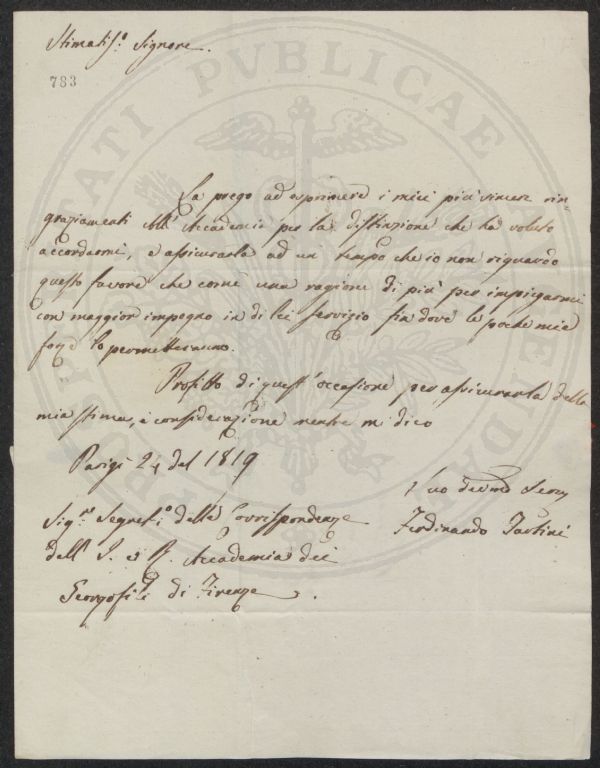 Stimatis.o Signore.
783
La prego ad esprimere i miei più sinceri rin=
graziamenti all' Accademia per la distinzione che ha voluto
accordarmi, e assicurarla ad un tempo che io non riguardo
questo favore che come una ragione di più per impiegarmi
con maggior impegno in di lei servizio fin dove le poche mie
forze lo permetteranno.
Profitto di quest' occasione per assicurarla della
mia stima, e considerazione mentre mi dico
Parigi 24 del 1819
Suo devmo Serv
Sig.re Segret.o delle Corrispondenze
Ferdinando Tartini
dell' I. e R. Accademia dei
Georgofili di Firenze.
PROSPERITATI PVBLICAE